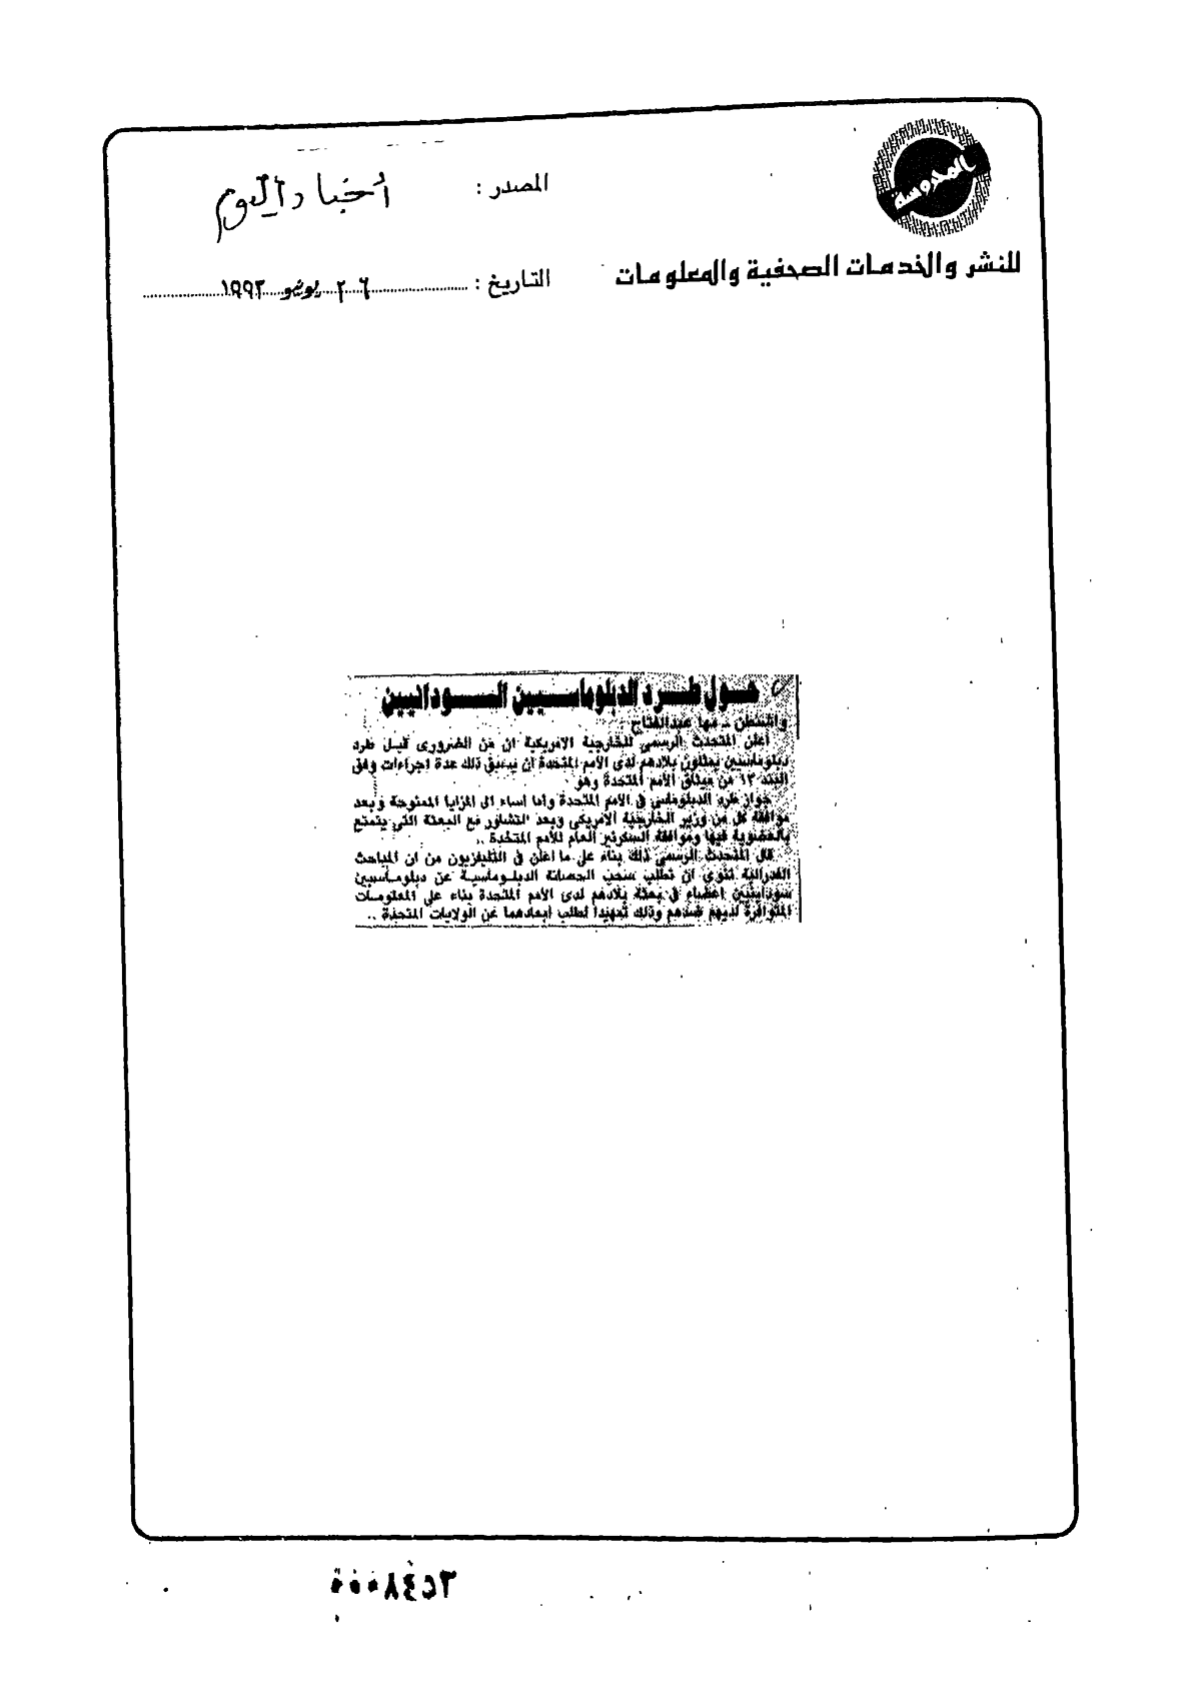 المحروسة
للنشر والخدمات الصحفية والمعلومات
المصدر : أخبار اليوم
التاريخ : ٢٦ يونيو ١٩٩٣
حول طرد الدبلوماسيين السودانيين
واشنطن ـ مها عبدالفتاح :
أعلن المتحدث الرسمى للخارجية الامريكية ان من الضرورى قبل طرد
دبلوماسيين يمثلون بلادهم لدى الأمم المتحدة أن يسبق ذلك عدة اجراءات وفق
البند ١٣ من ميثاق الأمم المتحدة وهو
جواز طرد الدبلوماسى فى الأمم المتحدة وأما أساء الى المزايا الممنوحة وبعد
موافقة كل من وزير الخارجية الأمريكى وبعد التشاور مع البعثة التى يتمتع
بالعضوية فيها وموافقة السكرتير العام للأمم المتحدة ..
قال المتحدث الرسمى ذلك بناء على ما اعلن فى التليفزيون من ان المباحث
الفدرالية تنوى ان تطلب سحب الحصانة الدبلوماسية عن دبلوماسيين
سودانيين اعضاء فى بعثة بلادهم لدى الأمم المتحدة بناء على المعلومات
المتوافرة لديهم ضدهم وذلك تمهيدا لطلب ابعادهما عن الولايات المتحدة ..